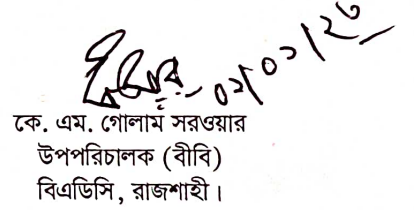 ০১/০১/২৩
কে. এম. গোলাম সরওয়ার
উপপরিচালক (বীবি)
বিএডিসি, রাজশাহী।